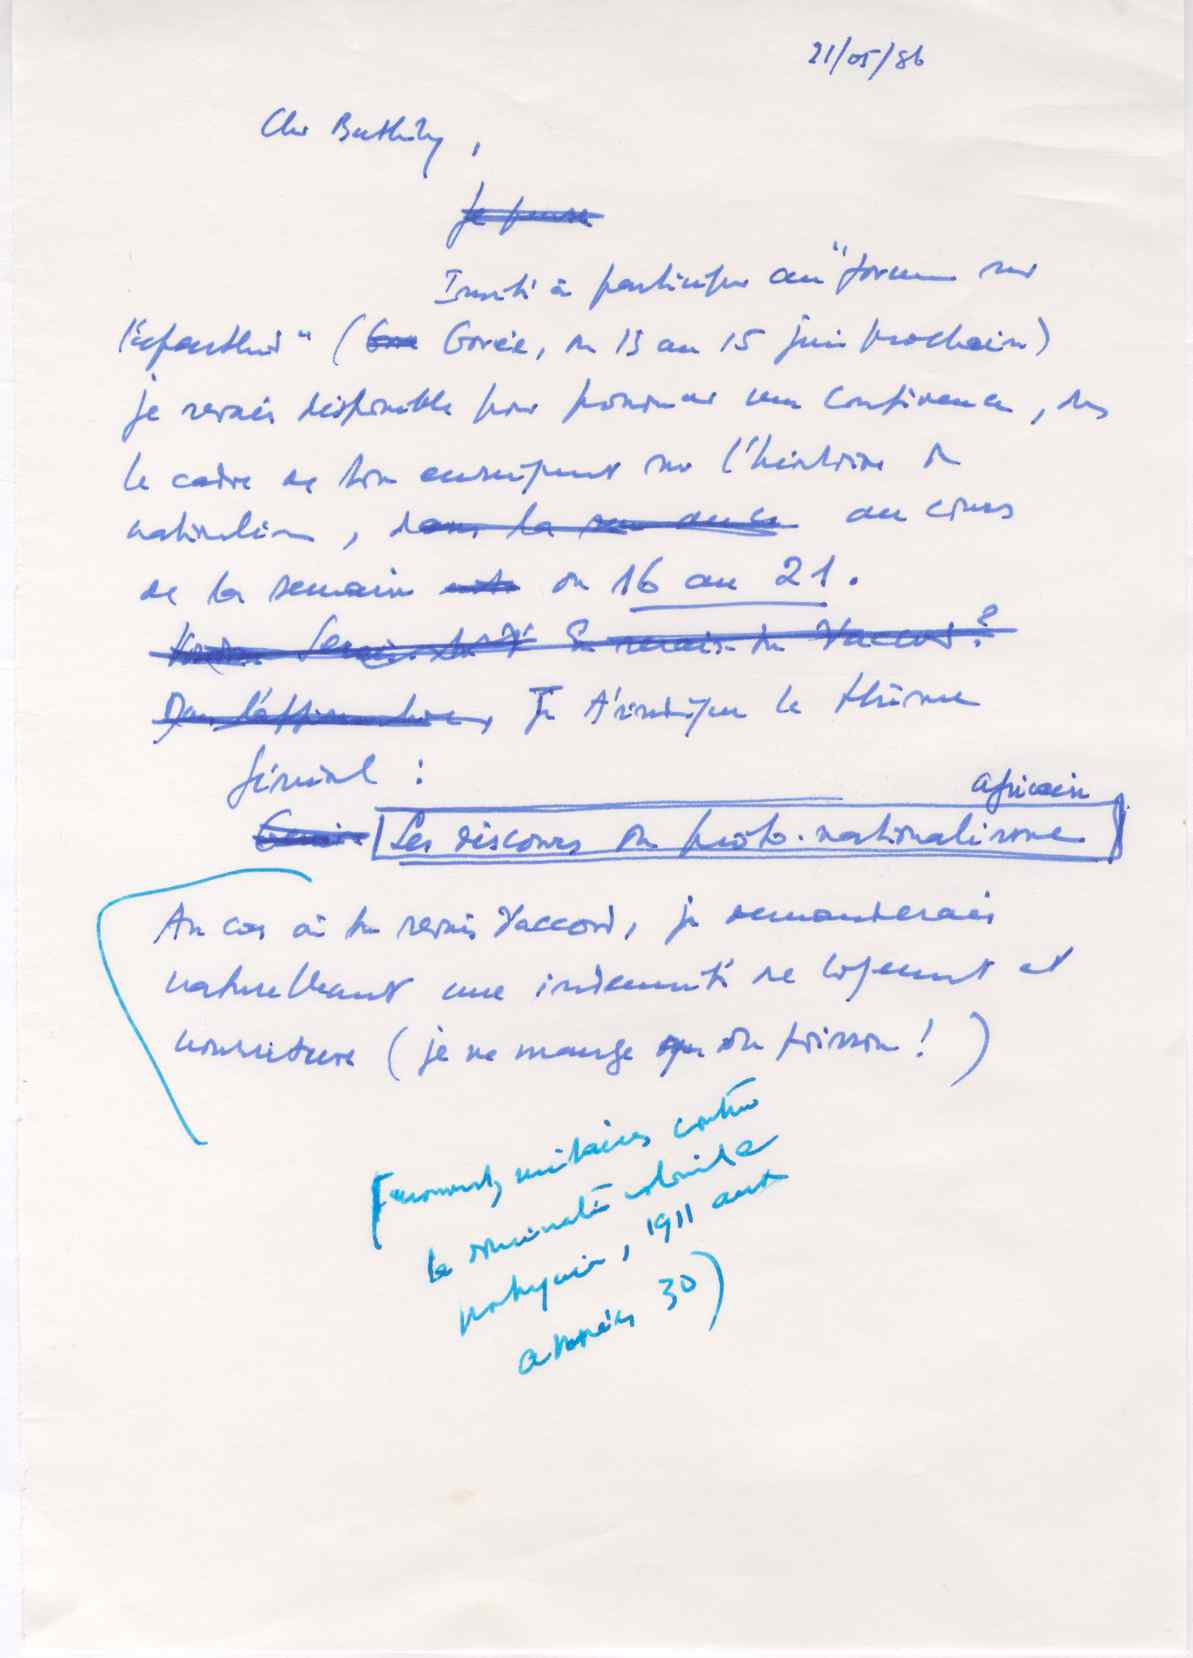 21/05/86
Cher Bathily,
Je pense
Invité à participer au "forum sur
l'apartheid" (Goree Gorée, du 13 au 15 juin prochain)
je serais disponible pour prononcer une conférence, dans
le cadre de ton enseignement sur l'histoire du
nationalisme, dans la au cours
de la semaine du 16 au 21.
Serais-tu d'accord ?
Je t'indique le thème
général :
africain
Les discours du proto-nationalisme
Au cas où tu serais d'accord, je demanderais
naturellement une indemnité de logement et
nourriture (je ne mange que du poisson !)
militaires contre
la domination coloniale
portugaise, 1911 aux
années 30)